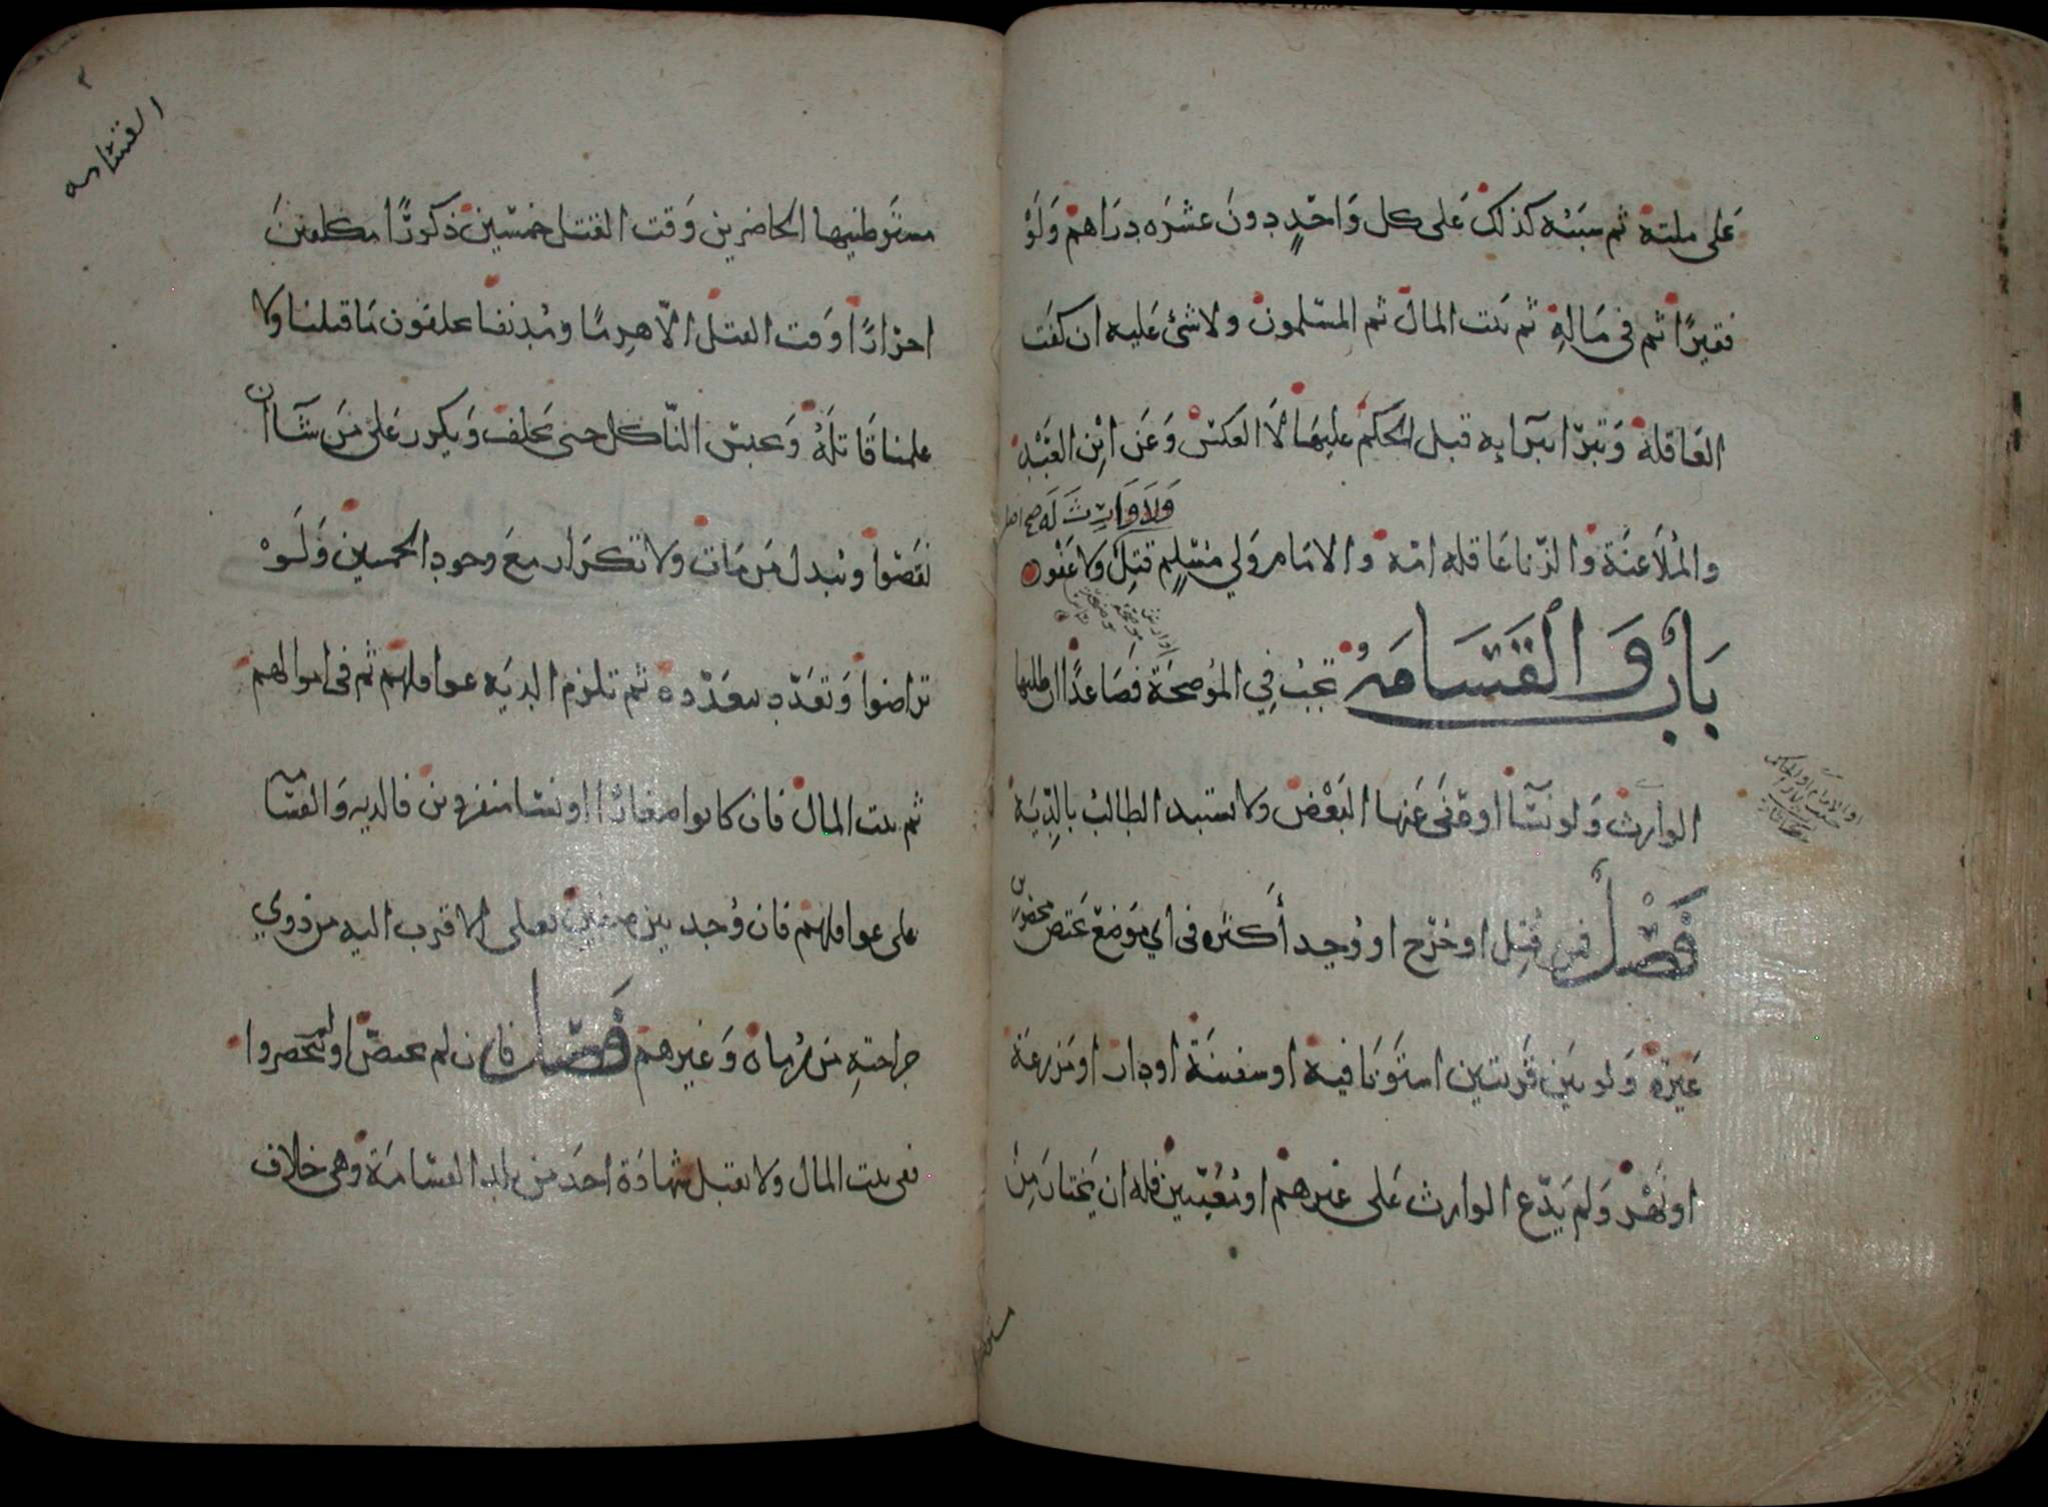 على ملته ثم سببه كذلك على كل واحد دون عشرة دراهم ولو
فقيرا ثم في ماله ثم بيت المال ثم المسلمون ولا شئ عليه ان كفت
العاقلة وتبرا ببرايه قبل الحكم عليها لا العكس وعن ابن العبد
ولا وارث له صح اصل
والملاعنة والزنا عاقله امه والامام ولي مسلم قتل ولا عفو
باب والقسامة تجب في الموضحة فصاعدا ان طلبها
الوارث ولو نسآ او عفى عنها البعض ولا يستبد الطالب بالدية
فصل فمن قتل او جرح او وجد أكثره في اي موضع يختص محصورين
غيره ولو بين قريتين استويا فيه او سفينة او دار او مزرعة
او نهر ولم يدع الوارث على غيرهم او معينين فله ان يختار من
القسامه
مستوطنيها الحاضرين وقت القتل خمسين ذكورا مكلفين
احرارا وقت القتل الا هرما ومدنفا يحلفون ما قتلنا ولا
علمنا قاتله ويحبس الناكل حتى يحلف ويكرر على من شآ ان
نقصوا ويبدل من مات ولا تكرار مع وجود الخمسين ولو
تراضوا وتعدد بتعدده ثم تلزم الديه عواقلهم ثم في اموالهم
ثم بيت المال فان كانوا صغارا او نسا منفردين فالديه والقسامة
على عواقلهم فان وجد بين صفين فعلى الاقرب اليه من ذوي
جراحته من رماه وغيرهم فصل فان لم يختص او لم ينحصروا
ففي بيت المال ولا يقبل شهادة احد من بلد القسامة وهي خلاف